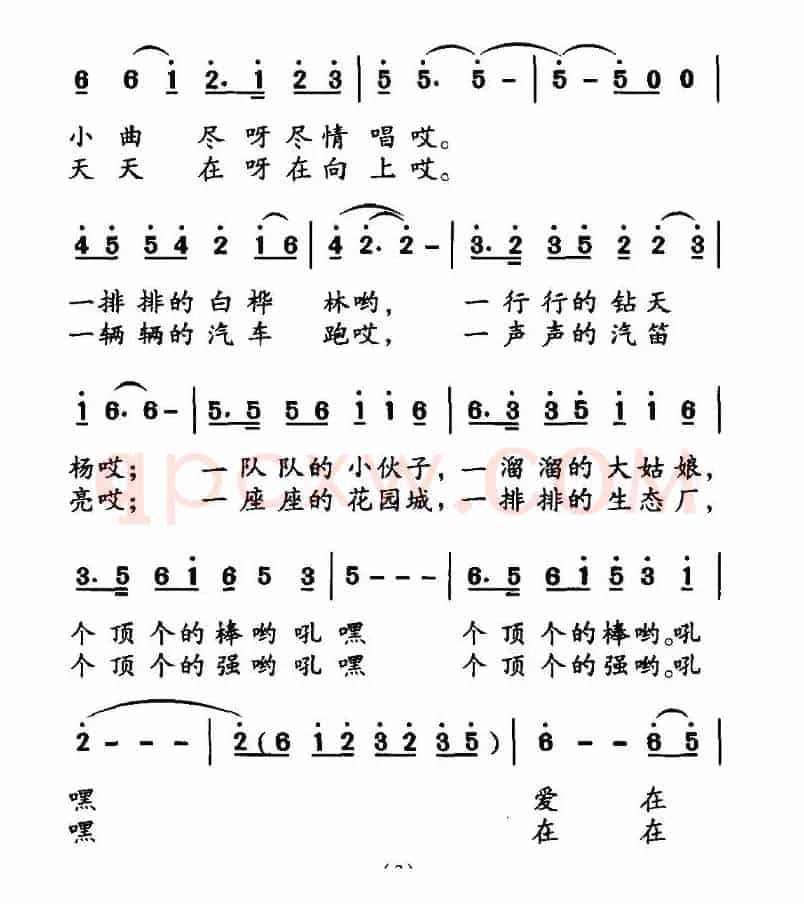 6 6 i 2. i 2 3 | 5 5. 5 - | 5 - 5 0 0 |
小曲 尽呀尽情唱哎。
天天 在呀在向上哎。
4 5 5 4 2 i 6 | 4 2. 2 - | 3. 2 3 5 2 2 3 |
一排排的白桦 林哟, 一行行的钻天
一辆辆的汽车 跑哎, 一声声的汽笛
i 6. 6 - | 5. 5 5 6 i i 6 | 6. 3 3 5 i i 6 |
杨哎; 一队队的小伙子, 一溜溜的大姑娘,
亮哎; 一座座的花园城, 一排排的生态厂,
qpcxw.com
3. 5 6 i 6 5 3 | 5 - - - | 6. 5 6 i 5 3 i |
个顶个的棒哟吼嘿 个顶个的棒哟。吼
个顶个的强哟吼嘿 个顶个的强哟。吼
2 - - - | 2 ( 6 i 2 3 2 3 5 ) | 6 - - 6 5 |
嘿 爱 在
嘿 在 在